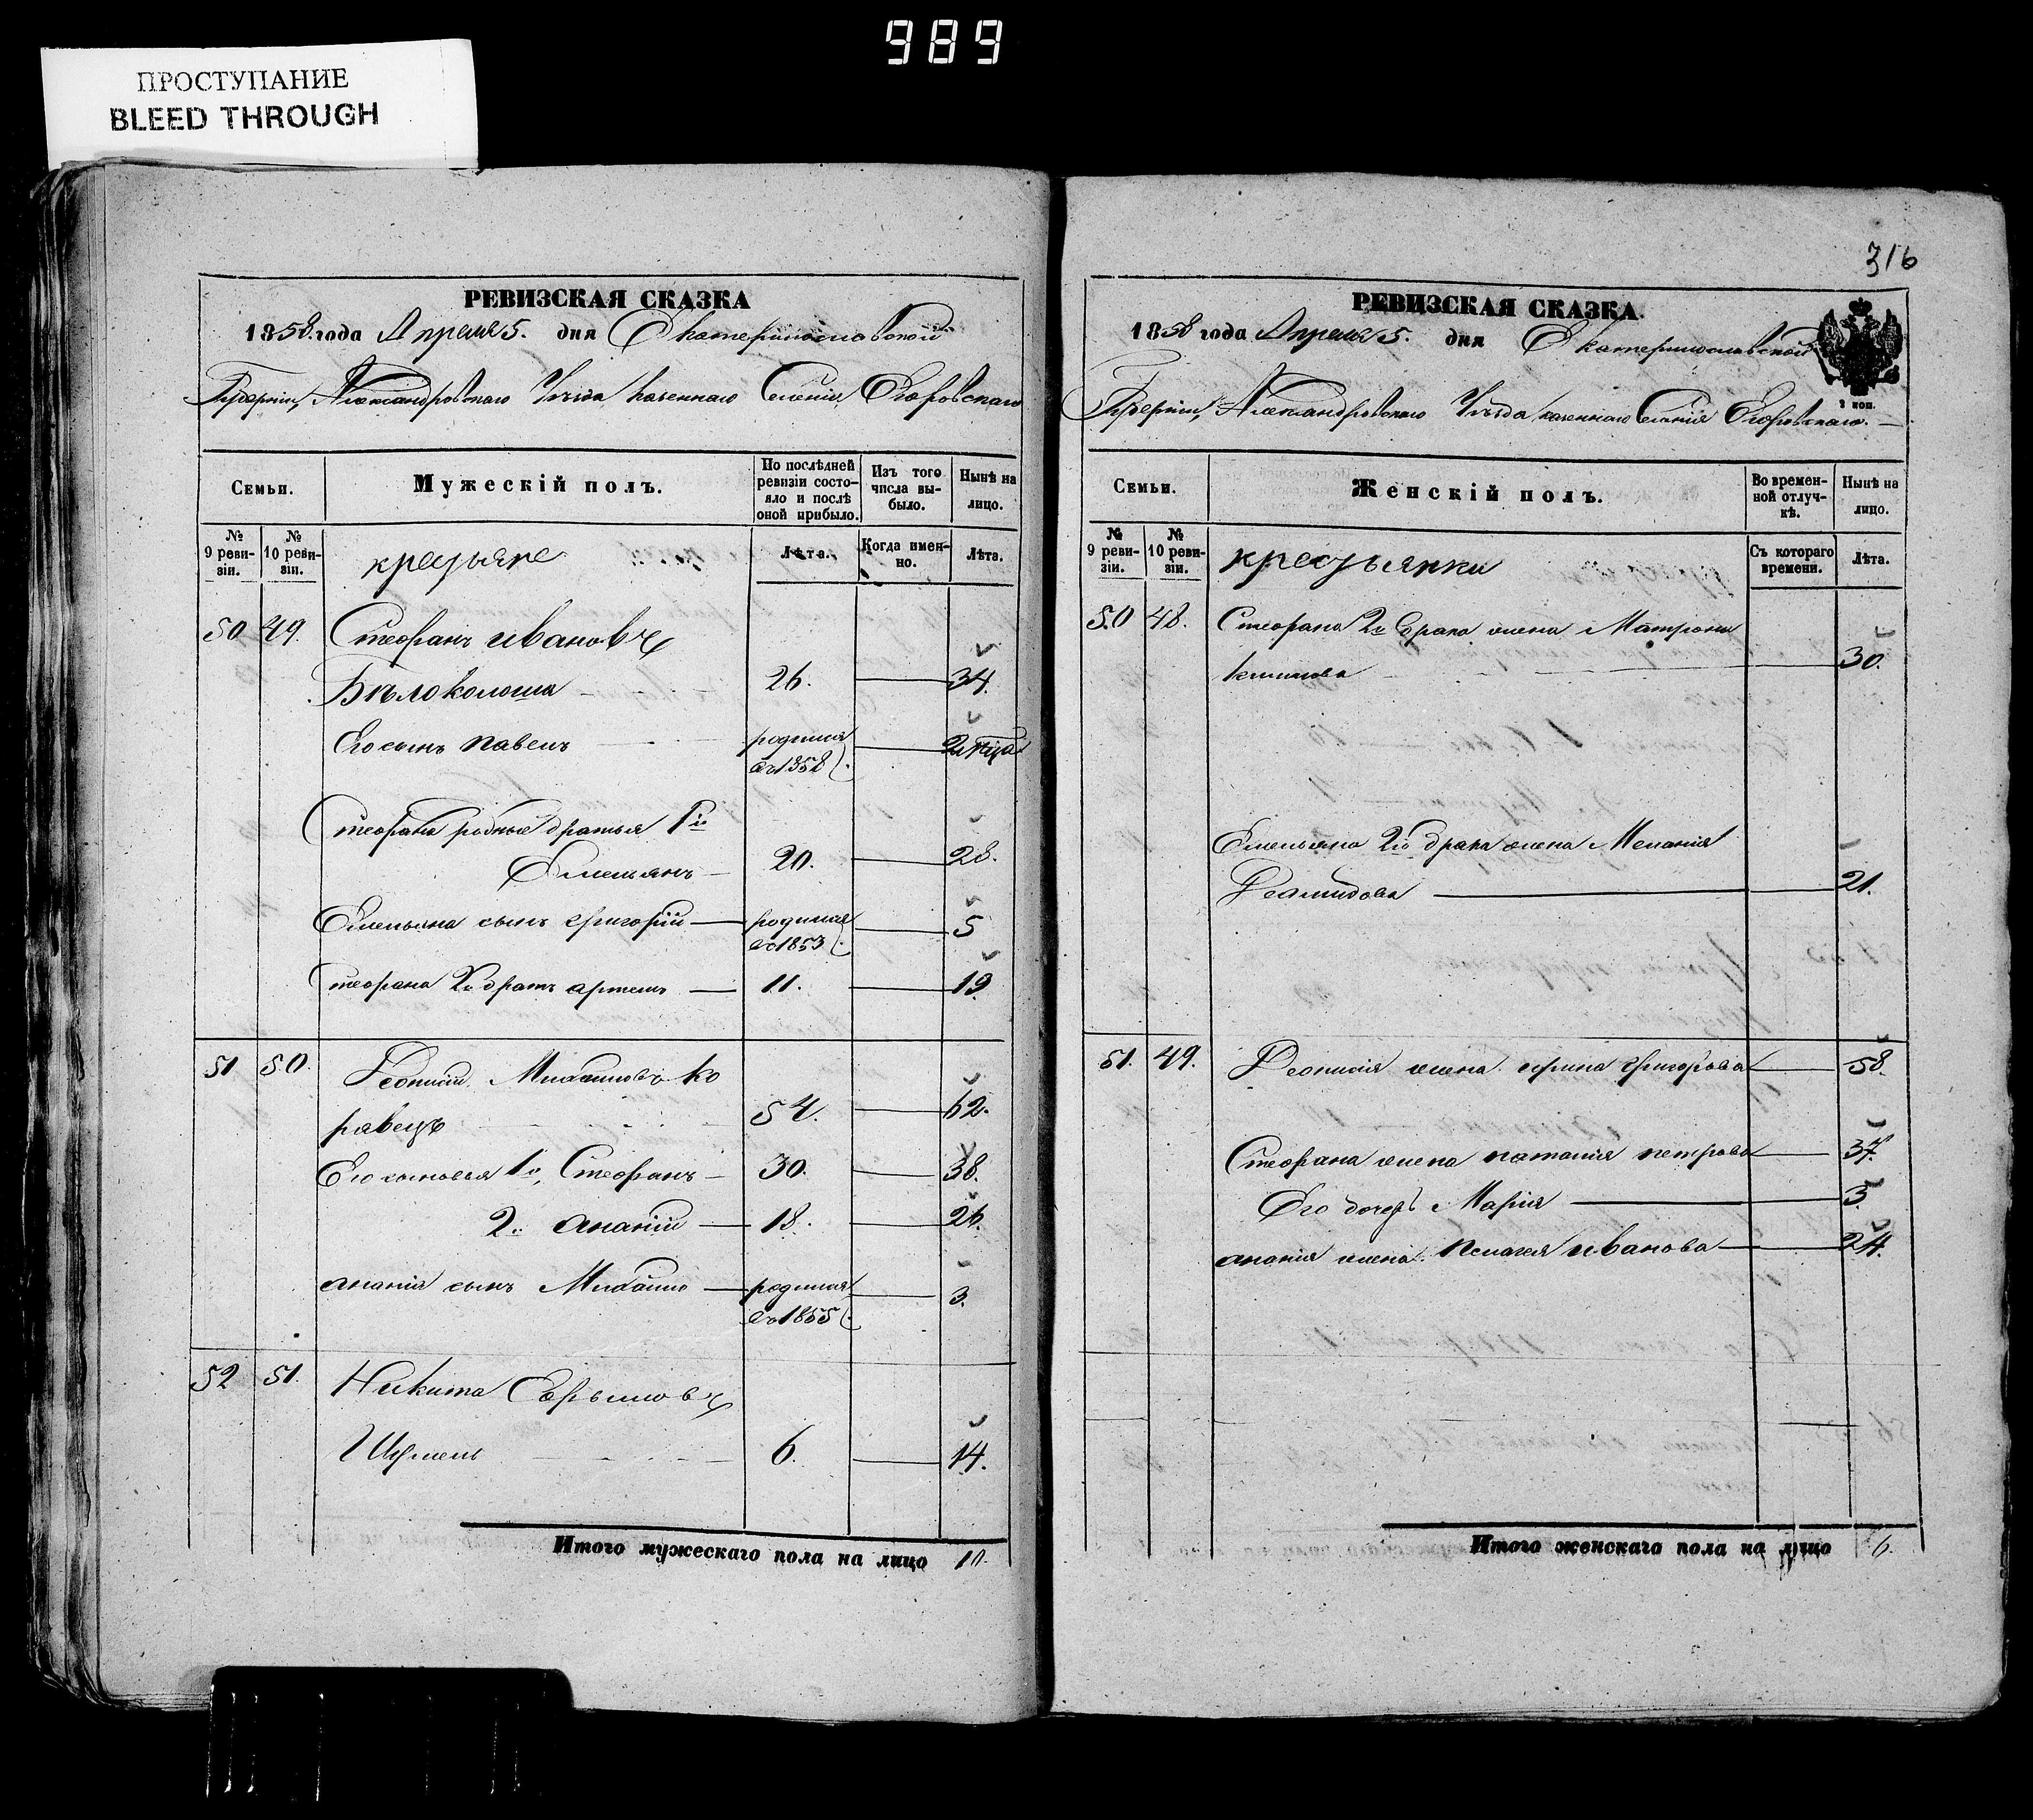 989
ПРОСТУПАНИЕ
BLEED THROUGH
РЕВИЗСКАЯ СКАЗКА
1858 года Апреля 5. дня Екатеринославской
Губерніи, Александровскаго Уѣзда казеннаго Селенія Егоровскаго
Семьи.
Мужескій полъ.
По послѣдней ревизіи состояло и послѣ оной прибыло.
Изъ того числа выбыло.
Нынѣ на лицо.
№ 9 ревизіи.
№ 10 ревизіи.
крестьяне
Лѣта.
Когда именно.
Лѣта.
50 49. Стефанъ Ивановъ
Бѣлоколоша 26. 34.
Его сынъ Павелъ родился въ 1858
Стефана родные братья 1й
Емельянъ 20. 28.
Емельяна сынъ Григорій родился въ 1853 5
Стефана 2й братъ Артемъ 11. 19
51 50. Деонисій Михайловъ Ко
равецъ 54. 62.
Его сыновья 1й, Стефанъ 30. 38.
2й Ананій 18. 26.
Ананія сынъ Михайло родился въ 1855 3.
52 51. Никита Ефимовъ
6. 14.
Итого мужескаго пола на лицо 10.
316
РЕВИЗСКАЯ СКАЗКА.
1858 года Апреля 5. дня Екатеринославской
2 коп.
Губерніи, Александровскаго Уѣзда казеннаго Селенія Егоровскаго.
Семьи.
Женскій полъ.
Во временной отлучкѣ.
Нынѣ на лицо.
№ 9 ревизіи.
№ 10 ревизіи.
крестьянки
Съ котораго времени.
Лѣта.
50 48. Стефана 2го брака жена Матрона
30.
Емельяна 2го брака жена Меланія
Демидова 21.
51. 49. Деонисія жена Ирина Григорьева 58.
Стефана жена Наталія Петрова 37.
Его дочерь Марія 3.
Ананія жена Пелагея Иванова 24.
Итого женскаго пола на лицо 6.